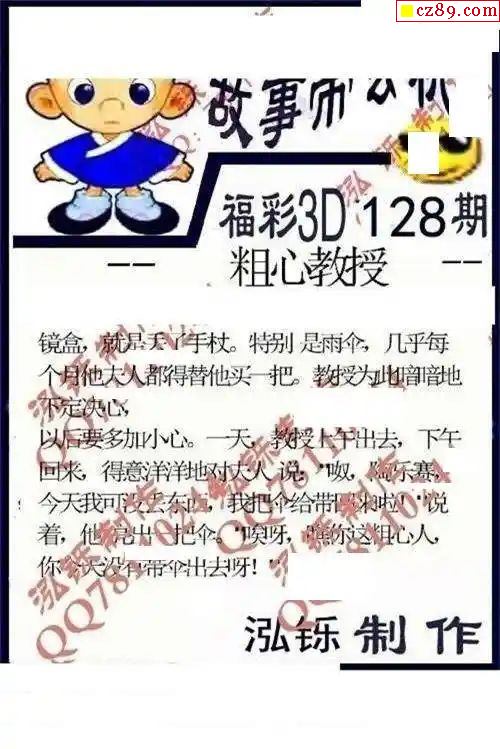 cz89.com
故事
福彩3D 128期
-- 粗心教授 --
镜盒，就是丢了手杖。特别 是雨伞，几乎每
个月他大人都得替他买一把。教授为此暗暗地
下定决心，
以后要多加小心。一天，教授上午出去，下午
回来，得意洋洋地对大人 说："呶，陶乐赛，
今天我可没丢东西，我把伞给带回来啦！"说
着，他 亮出一把伞。"唉呀，瞧你这粗心人，
你今天没有带伞出去呀！"
泓铄制作
泓铄制作
QQ781114024